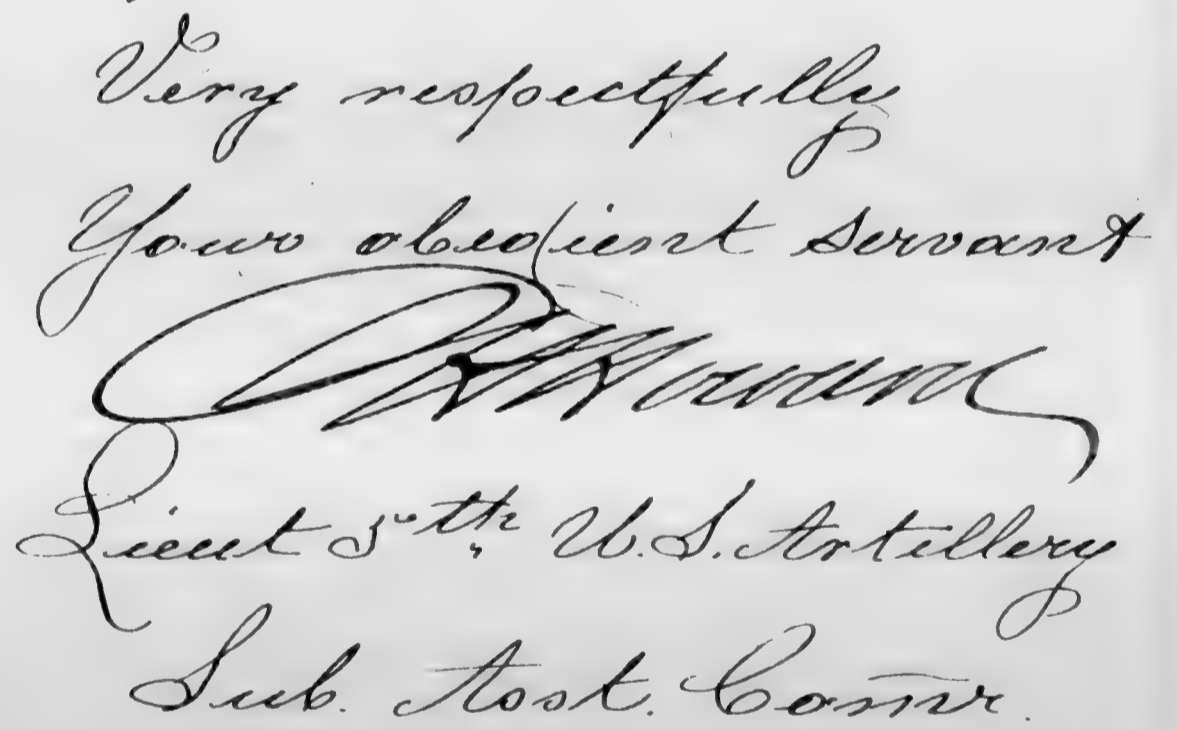 Very respectfully
Your obedient servant
Lieut 5th U.S. Artillery
Sub. Asst. Comr.